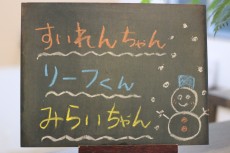 すいれんちゃん
リーフくん
みらいちゃん